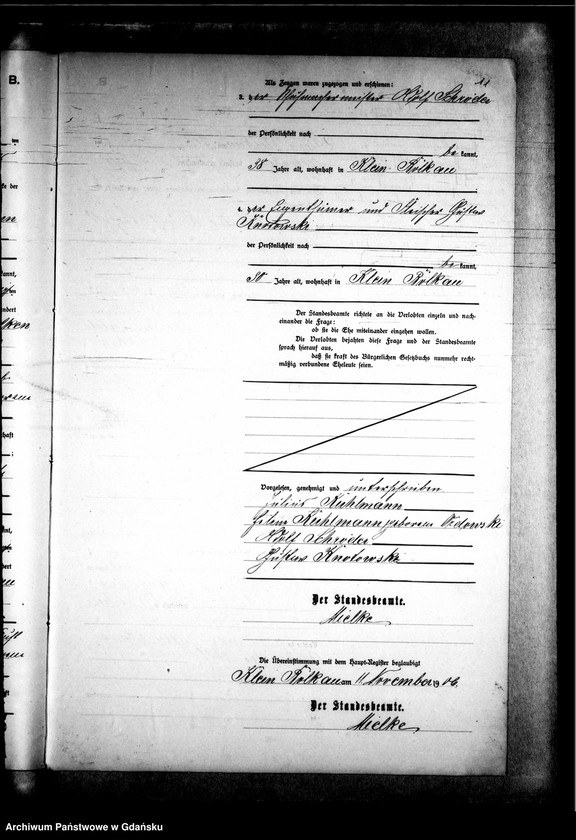 B.
11
Als Zeugen waren zugezogen und erschienen:
3. der Schuhmachermeister Adolf Schröder
der Persönlichkeit nach
be kannt,
38 Jahre alt, wohnhaft in Klein Bölkau
4. der Eigenthümer und Fleischer Gustav
Knotowski
der Persönlichkeit nach
be kannt,
30 Jahre alt, wohnhaft in Klein Bölkau
Der Standesbeamte richtete an die Verlobten einzeln und nach-
einander die Frage:
ob sie die Ehe miteinander eingehen wollen.
Die Verlobten bejahten diese Frage und der Standesbeamte
sprach hierauf aus,
daß sie kraft des Bürgerlichen Gesetzbuchs nunmehr recht-
mäßig verbundene Eheleute seien.
Vorgelesen, genehmigt und unterschrieben
Julius Kuhlmann
Kuhlmann geborene
Adolf Schröder
Gustav Knotowski
Der Standesbeamte.
Mielke
Die Übereinstimmung mit dem Haupt-Register beglaubigt
Klein Bölkau am 11 November 1906.
Der Standesbeamte.
Mielke
Archiwum Państwowe w Gdańsku